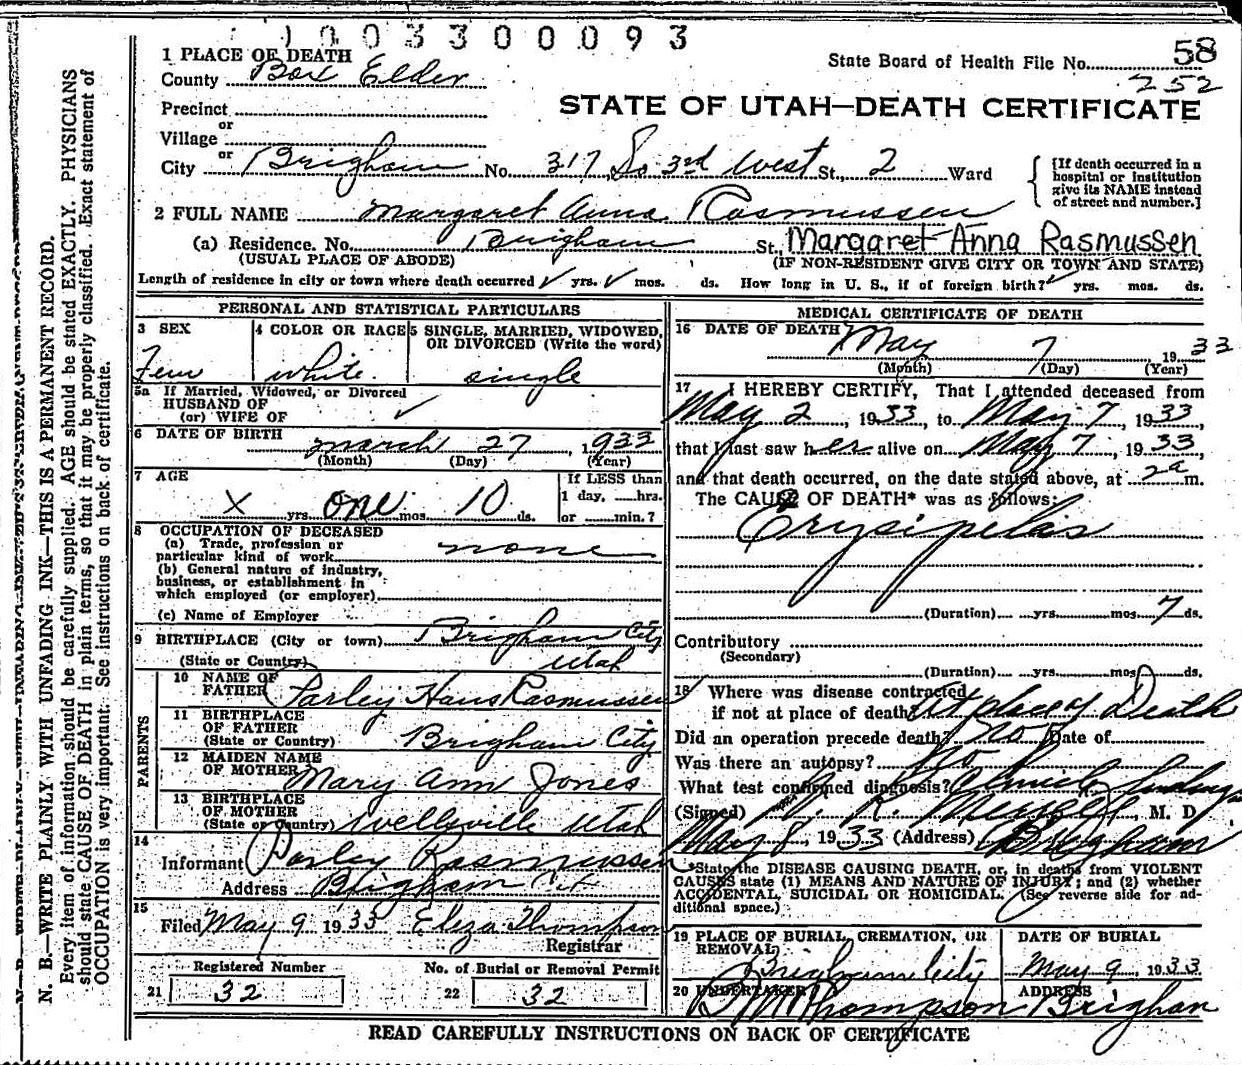 1003300093
1 PLACE OF DEATH
County Box Elder
State Board of Health File No. 58
252
Precinct
or
Village
STATE OF UTAH—DEATH CERTIFICATE
or
City Brigham No. 317 So 3rd West St., 2 Ward
{ [If death occurred in a hospital or institution give its NAME instead of street and number.]
2 FULL NAME Margaret Anna Rasmussen
(a) Residence. No. Brigham St., Margaret Anna Rasmussen
(USUAL PLACE OF ABODE) (IF NON-RESIDENT GIVE CITY OR TOWN AND STATE)
Length of residence in city or town where death occurred ✓ yrs. ✓ mos. ds. How long in U. S., if of foreign birth? ✓ yrs. mos. ds.
PERSONAL AND STATISTICAL PARTICULARS
3 SEX
Fem
4 COLOR OR RACE
white
5 SINGLE, MARRIED, WIDOWED, OR DIVORCED (Write the word)
single
5a If Married, Widowed, or Divorced
HUSBAND OF
(or) WIFE OF ✓
6 DATE OF BIRTH
March 27, 1933
(Month) (Day) (Year)
7 AGE
x yrs. one mos. 10 ds.
If LESS than
1 day, hrs.
or min.?
8 OCCUPATION OF DECEASED
(a) Trade, profession or
particular kind of work none
(b) General nature of industry,
business, or establishment in
which employed (or employer)
(c) Name of Employer
9 BIRTHPLACE (City or town) Brigham City
(State or Country) Utah
PARENTS
10 NAME OF
FATHER Parley Hans Rasmussen
11 BIRTHPLACE
OF FATHER
(State or Country) Brigham City
12 MAIDEN NAME
OF MOTHER Mary Ann Jones
13 BIRTHPLACE
OF MOTHER
(State or Country) Wellsville Utah
14
Informant Parley Rasmussen
Address Brigham Cit
15
Filed May 9 1933 Eliza Thompson
Registrar
Registered Number
21 32
No. of Burial or Removal Permit
22 32
MEDICAL CERTIFICATE OF DEATH
16 DATE OF DEATH
May 7, 1933
(Month) (Day) (Year)
17 I HEREBY CERTIFY, That I attended deceased from
May 2, 1933, to May 7, 1933,
that I last saw her alive on May 7, 1933,
and that death occurred, on the date stated above, at 2a m.
The CAUSE OF DEATH* was as follows:
Erysipelas
(Duration) yrs. mos. 7 ds.
Contributory
(Secondary)
(Duration) yrs. mos. ds.
18 Where was disease contracted
if not at place of death? At place of Death
Did an operation precede death? No Date of
Was there an autopsy? No
What test confirmed diagnosis?
(Signed) , M. D.
May 8, 1933 (Address) Brigham
*State the DISEASE CAUSING DEATH, or, in deaths from VIOLENT
CAUSES state (1) MEANS AND NATURE OF INJURY; and (2) whether
ACCIDENTAL, SUICIDAL OR HOMICIDAL. (See reverse side for ad-
ditional space.)
19 PLACE OF BURIAL, CREMATION, OR
REMOVAL
Brigham City
DATE OF BURIAL
May 9, 1933
20 UNDERTAKER
Thompson
ADDRESS
Brigham
READ CAREFULLY INSTRUCTIONS ON BACK OF CERTIFICATE
N. B.—WRITE PLAINLY WITH UNFADING INK—THIS IS A PERMANENT RECORD.
Every item of information should be carefully supplied. AGE should be stated EXACTLY. PHYSICIANS
should state CAUSE OF DEATH in plain terms, so that it may be properly classified. Exact statement of
OCCUPATION is very important. See instructions on back of certificate.